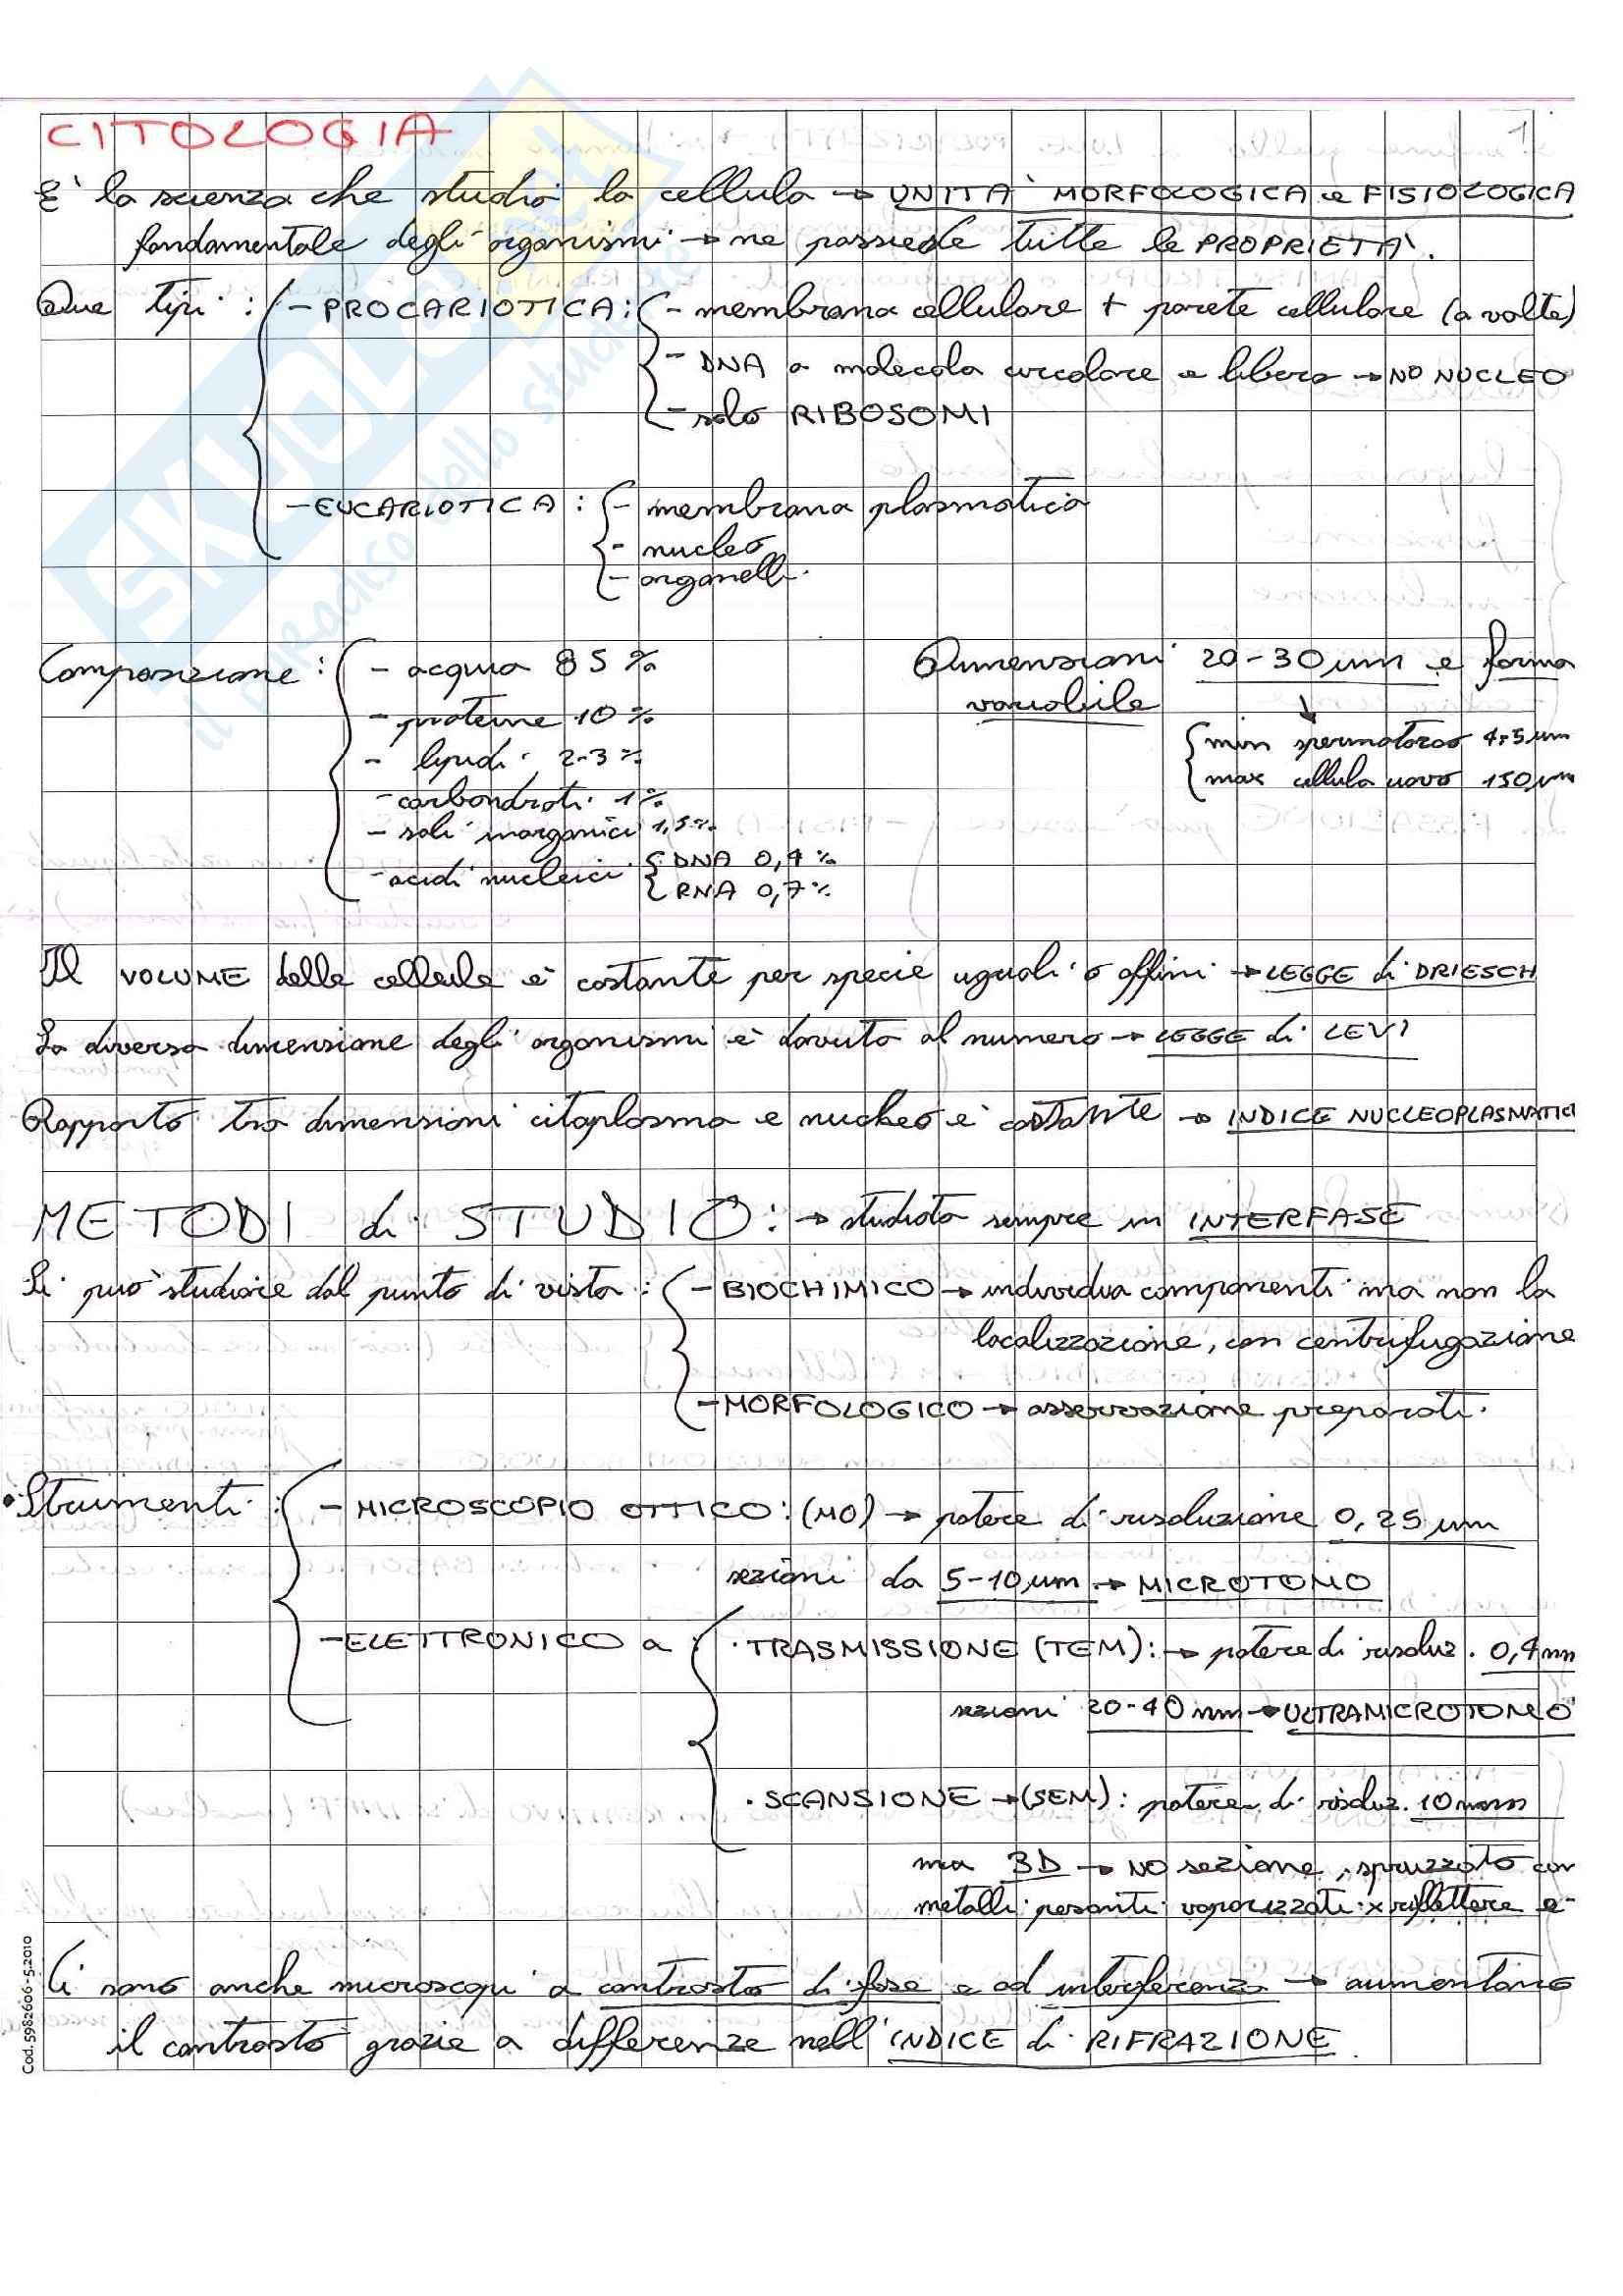 1
CITOLOGIA
È la scienza che studia la cellula → UNITÀ MORFOLOGICA e FISIOLOGICA
fondamentale degli organismi → ne possiede tutte le PROPRIETÀ.
Due tipi: - PROCARIOTICA: - membrana cellulare + parete cellulare (a volte)
- DNA a molecola circolare e libera → NO NUCLEO
- solo RIBOSOMI
- EUCARIOTICA: - membrana plasmatica
- nucleo
- organelli.
Composizione: - acqua 85 %
- proteine 10 %
- lipidi 2-3 %
- carboidrati 1 %
- sali inorganici 1,5 %
- acidi nucleici DNA 0,4 %
RNA 0,7 %
Dimensioni 20-30 µm e forma
variabile
min spermatozoo 4-5 µm
max cellula uovo 150 µm
Il VOLUME delle cellule è costante per specie uguali o affini → LEGGE di DRIESCH
La diversa dimensione degli organismi è dovuta al numero → LEGGE di LEVI
Rapporto tra dimensioni citoplasma e nucleo è costante → INDICE NUCLEOPLASMATIC
METODI di STUDIO: → studiata sempre in INTERFASE
Si può studiare dal punto di vista: - BIOCHIMICO → individua componenti ma non la
localizzazione, con centrifugazione
- MORFOLOGICO → osservazione preparati.
• Strumenti: - MICROSCOPIO OTTICO: (MO) → potere di risoluzione 0,25 µm
sezioni da 5-10 µm → MICROTOMO
- ELETTRONICO a · TRASMISSIONE (TEM): → potere di risoluz. 0,4 nm
sezioni 20-40 nm → ULTRAMICROTOMO
· SCANSIONE → (SEM): potere di risoluz. 10 nm
ma 3D → NO sezione, spruzzato con
metalli pesanti vaporizzati x riflettere e-
Ci sono anche microscopi a contrasto di fase e ad interferenza → aumentano
il contrasto grazie a differenze nell'INDICE di RIFRAZIONE.
Cod. 5982606 - 5.2010
SKUOLA.net
il paradiso dello studente